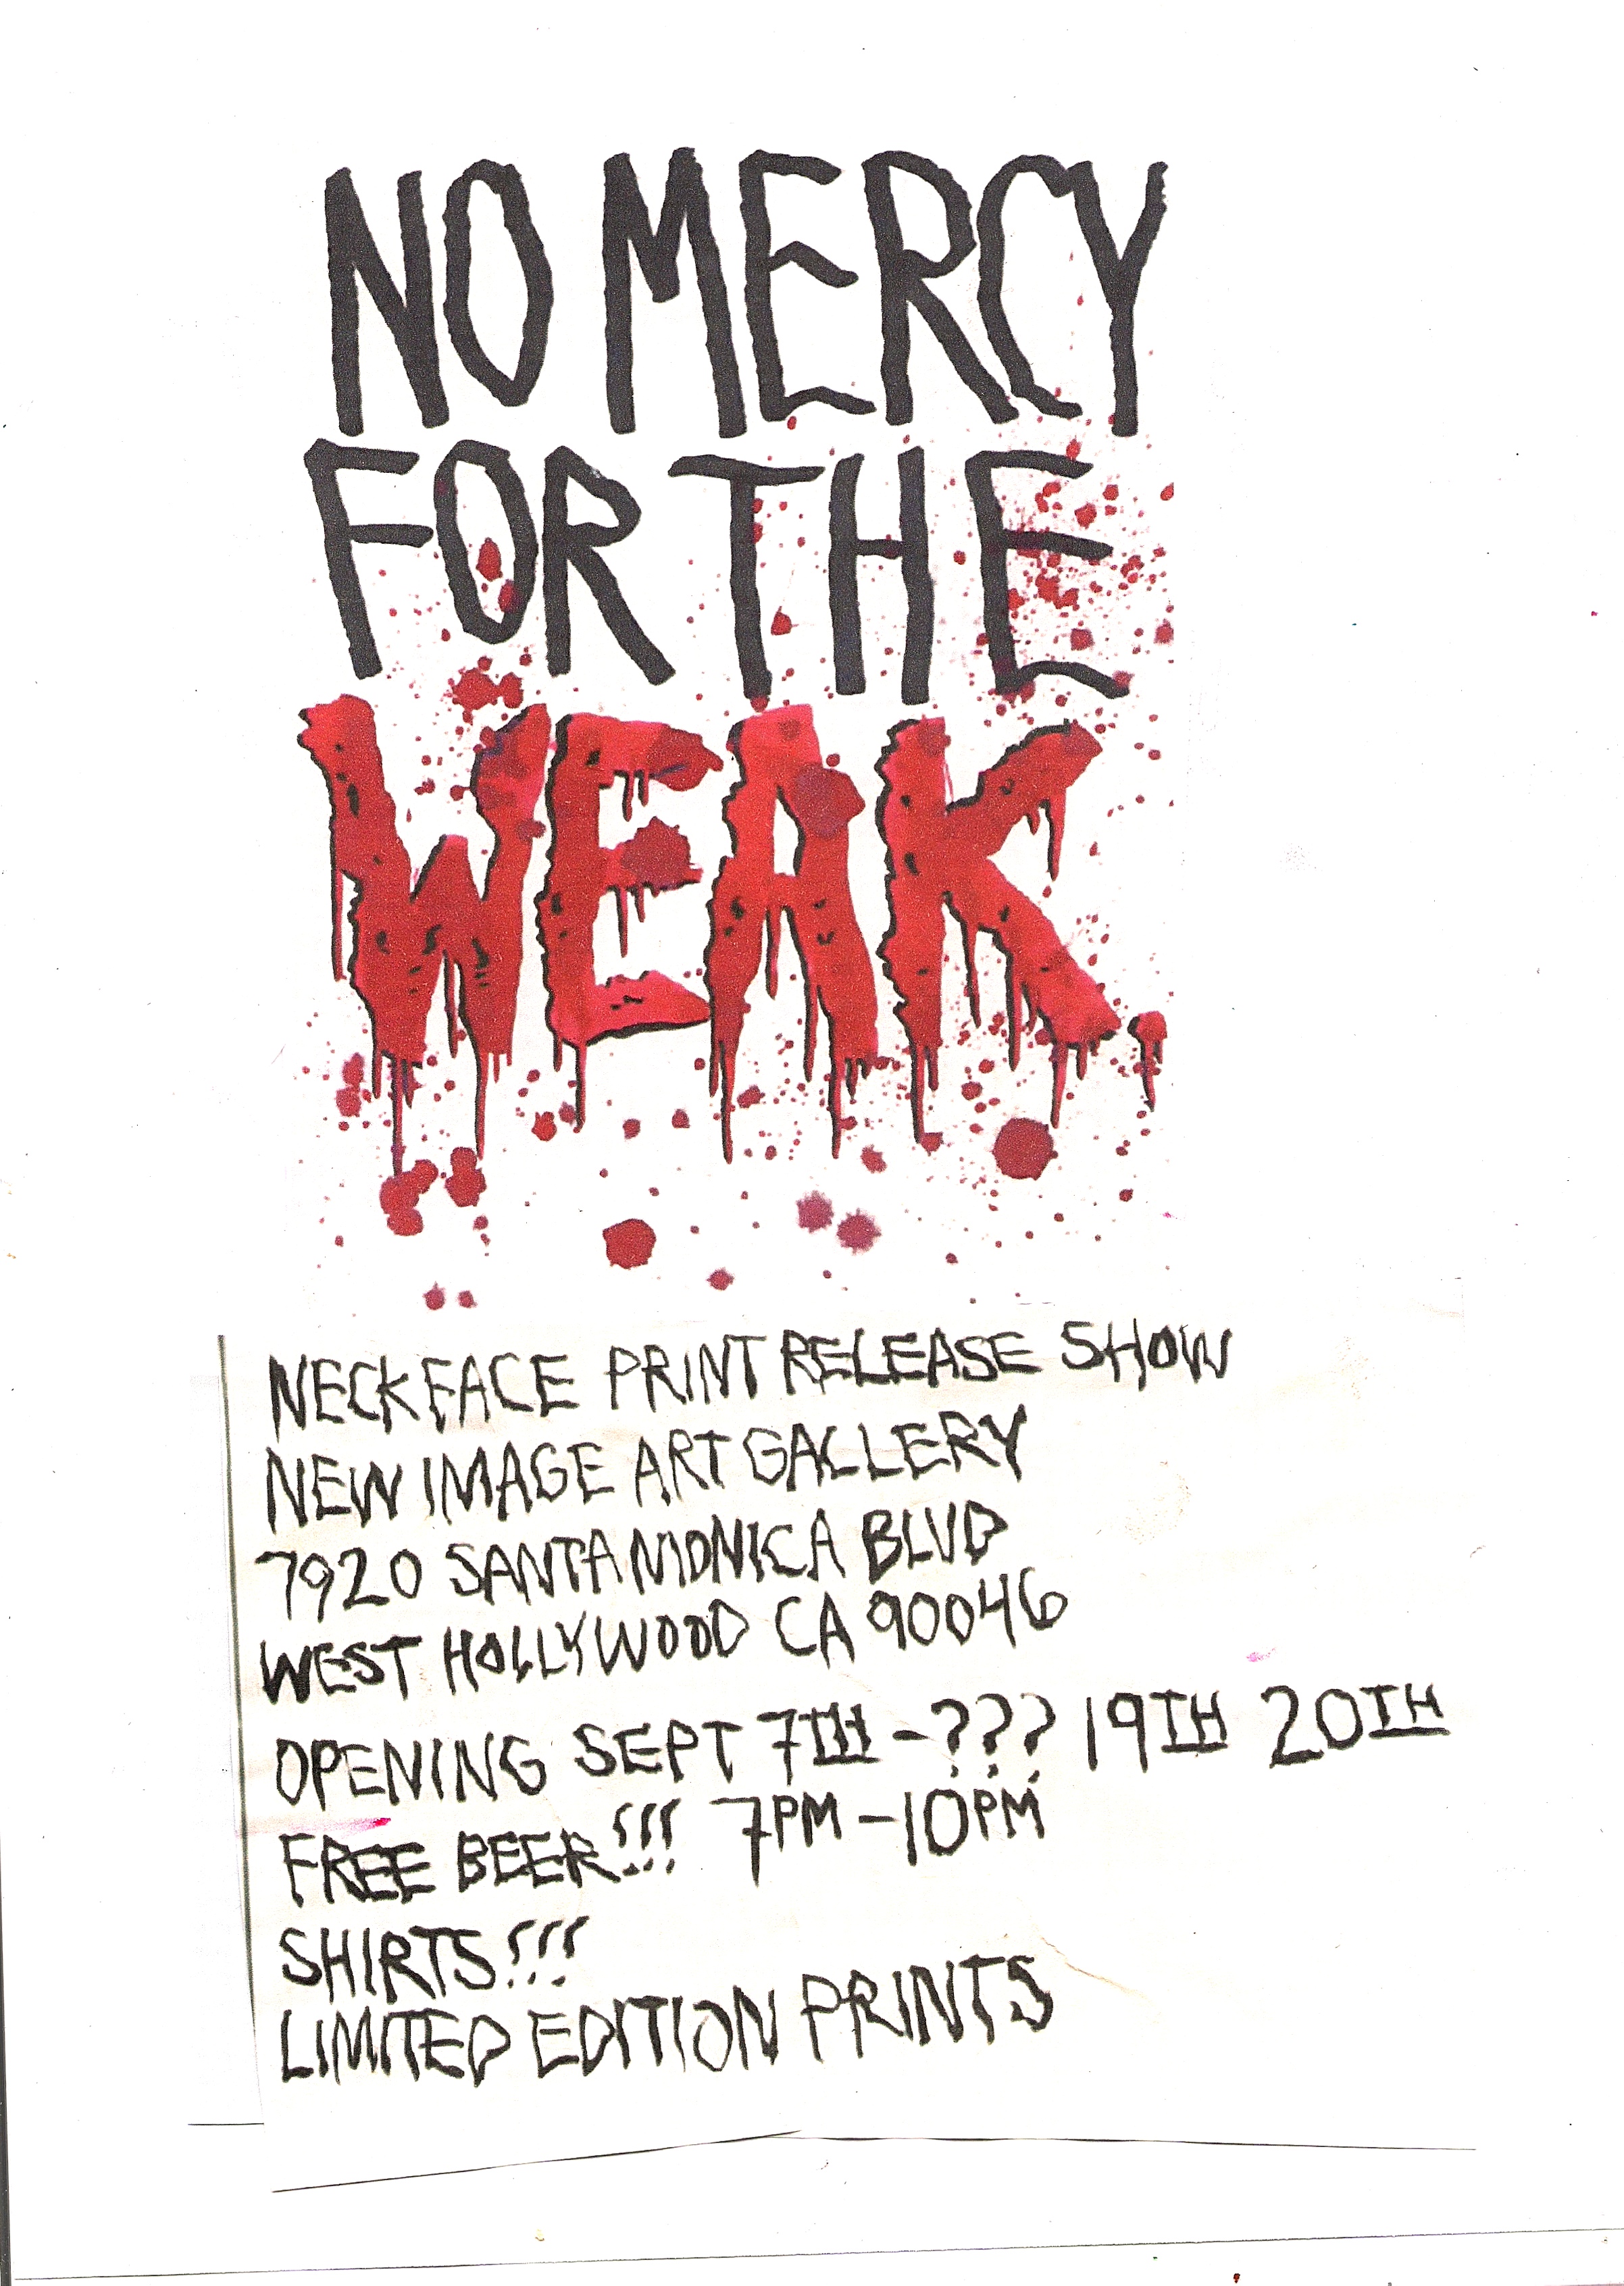 NO MERCY
FOR THE
WEAK.
NECKFACE PRINT RELEASE SHOW
NEW IMAGE ART GALLERY
7920 SANTA MONICA BLVD
WEST HOLLYWOOD CA 90046
OPENING SEPT 7TH - ??? 19TH 20TH
FREE BEER!!! 7PM - 10PM
SHIRTS!!!
LIMITED EDITION PRINTS